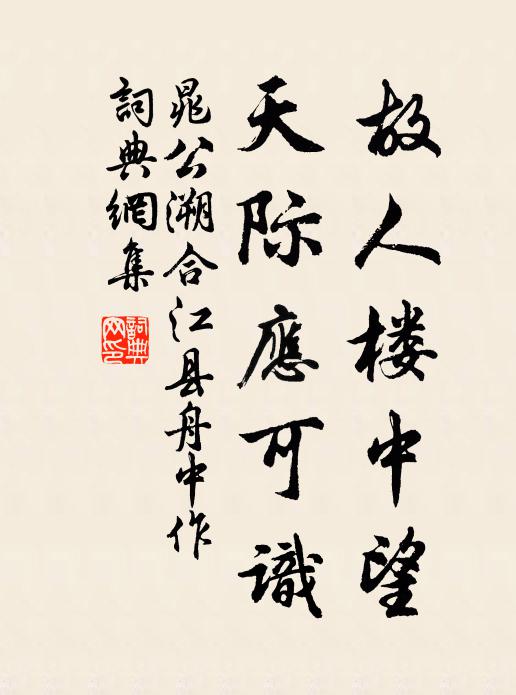 故人楼中望
天际應可識
晁公溯合江县舟中作
詞典網集
詞典
网印